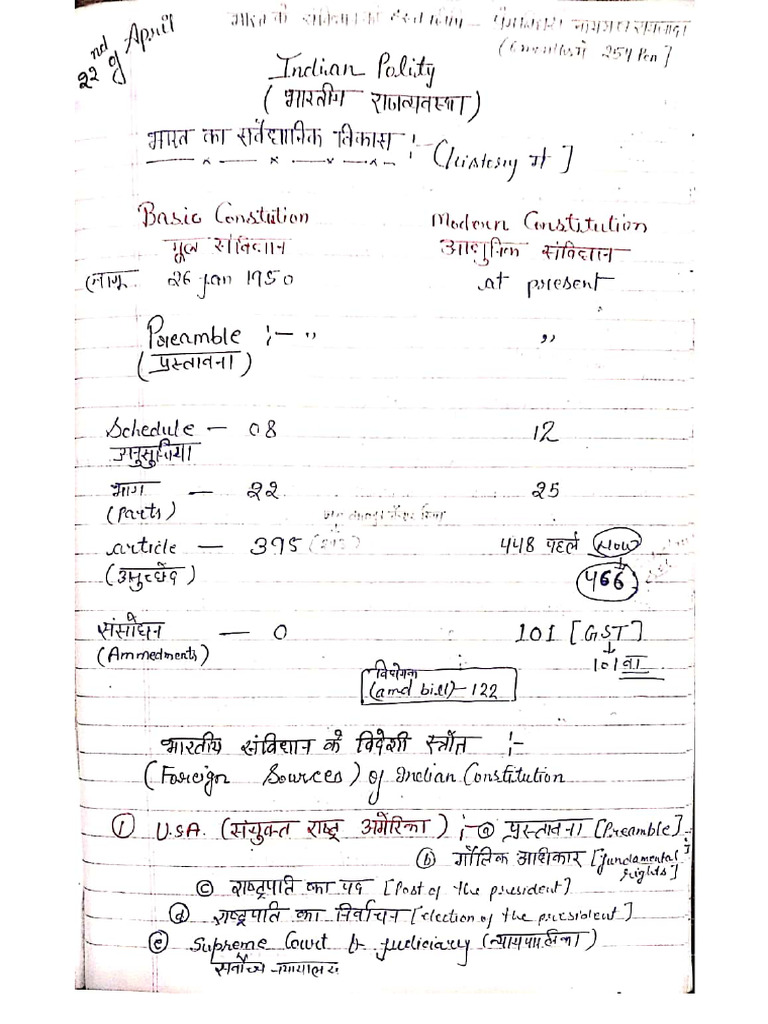 22nd of April
भारत के संविधान का हस्त लेखन - प्रेमबिहारी नारायण रायजादा
254 Pen]
Indian Polity
(भारतीय राजव्यवस्था)
भारत का संवैधानिक विकास :- (History में]
Basic Constution Modern Constitution
मूल संविधान आधुनिक संविधान
लागू 26 Jan 1950 at present
Preamble :- " "
(प्रस्तावना)
Schedule - 08 12
अनुसूचिया
भाग - 22 25
(Parts)
article - 395 448 पहले Now
(अनुच्छेद) 466
संसोधन - 0 101 [GST]
(Ammedments) 101 वा
(amd bill)-122
भारतीय संविधान के विदेशी स्त्रोत :-
(Foreign Sources) of Indian Constitution
① U.S.A. (संयुक्त राष्ट्र अमेरिका) :- ⓐ प्रस्तावना [Preamble]
ⓑ मौलिक अधिकार [fundamental rights]
ⓒ राष्ट्रपति का पद [Post of the president]
ⓓ राष्ट्रपति का निर्वाचन [election of the president]
ⓔ Supreme Court & judiciary (न्यायपालिका)
सर्वोच्च न्यायालय